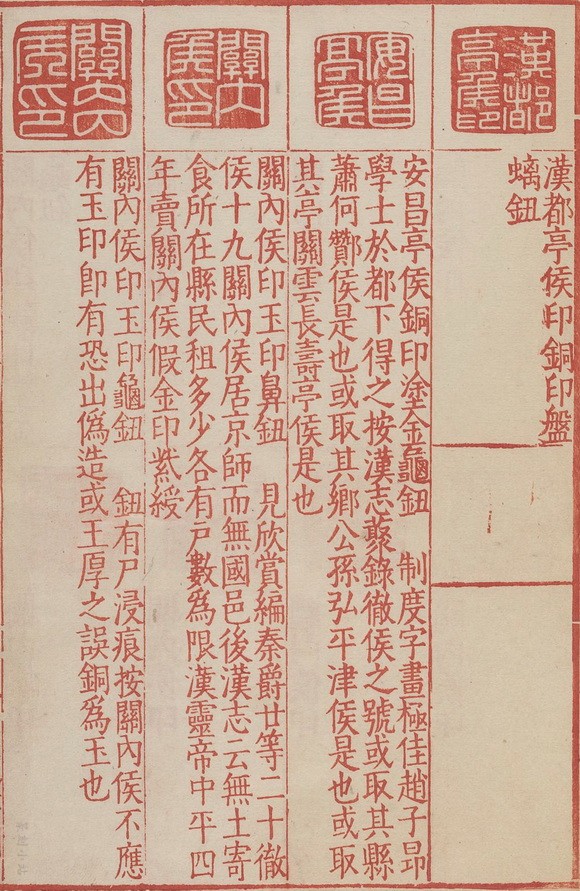 漢都
亭侯印
漢都亭侯印銅印盤
螭鈕
安昌
亭侯
安昌亭侯銅印塗金龜鈕　制度字畫極佳趙子昂
學士於都下得之按漢志藂錄徹侯之號或取其縣
蕭何酇侯是也或取其鄉公孫弘平津侯是也或取
其亭關雲長壽亭侯是也
關內
侯印
關內侯印玉印鼻鈕　見欣賞編秦爵廿等二十徹
侯十九關內侯居京師而無國邑後漢志云無土寄
食所在縣民租多少各有戶數爲限漢靈帝中平四
年賣關內侯假金印紫綬
關內
侯印
關內侯印玉印龜鈕　鈕有尸浸痕按關內侯不應
有玉印卽有恐出僞造或王厚之誤銅爲玉也